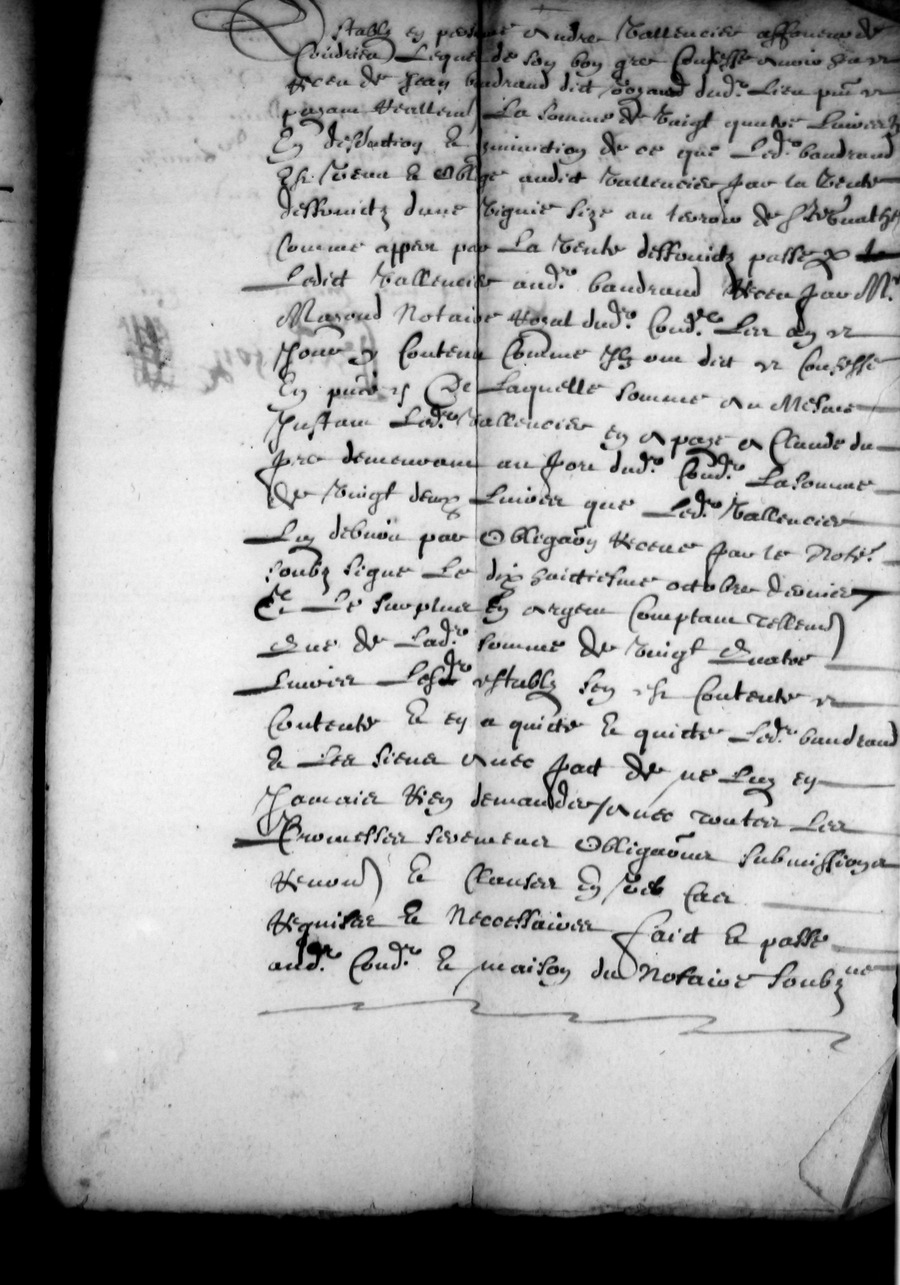 Estably en personne Andre Vallencier affaneur de
Coindrieu Lequel de son bon gre Confesse avoir heu et
Receu de Jean baudrand dict dud.' Lieu pnt et
payant Reallemt La somme de Vingt quatre Livres
En deduction et diminution de ce que Led.' baudrand
Est tenu et Oblige audict Vallencier par la Vente
desfruictz dune Vignie size au terroir de
Comme appert par La Vente desfruictz passee p
Ledict Vallencier aud.' baudrand Receu par M.e
Maroud Notaire Royal dud.' Cond.' Les an et
Jour y Contenu Comme Ilz ont dict et Confesse
En pnces De Laquelle somme Au Mesme
Instant Led.' Vallencier en A paye A Claude du
pre demeurant au port dud.' Cond.' La somme
De Vingt deux Livres que Led.' Vallencier
Luy debvoit par Obligaon Receue par le Not.e
soubz signe Le dix huictiesme octobre dernier
Et Le surplus En Argent Comptant tellemt
Que de Lad.' somme de Vingt Quatre
Livres Led.' estably sen est Contente et
Contente et en a quicte et quicte Led.' baudrand
et Les siens Avec pact de ne Luy en
Jamais Rien demander Avec toutes Les
Promesses serements Obligaons submissions
Renons et Clauses En telz Cas
Requises et Neccessaires faict et passe
aud.' Cond.' et maison du Notaire soubzne